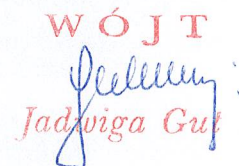 WÓJT
Jadwiga Gut